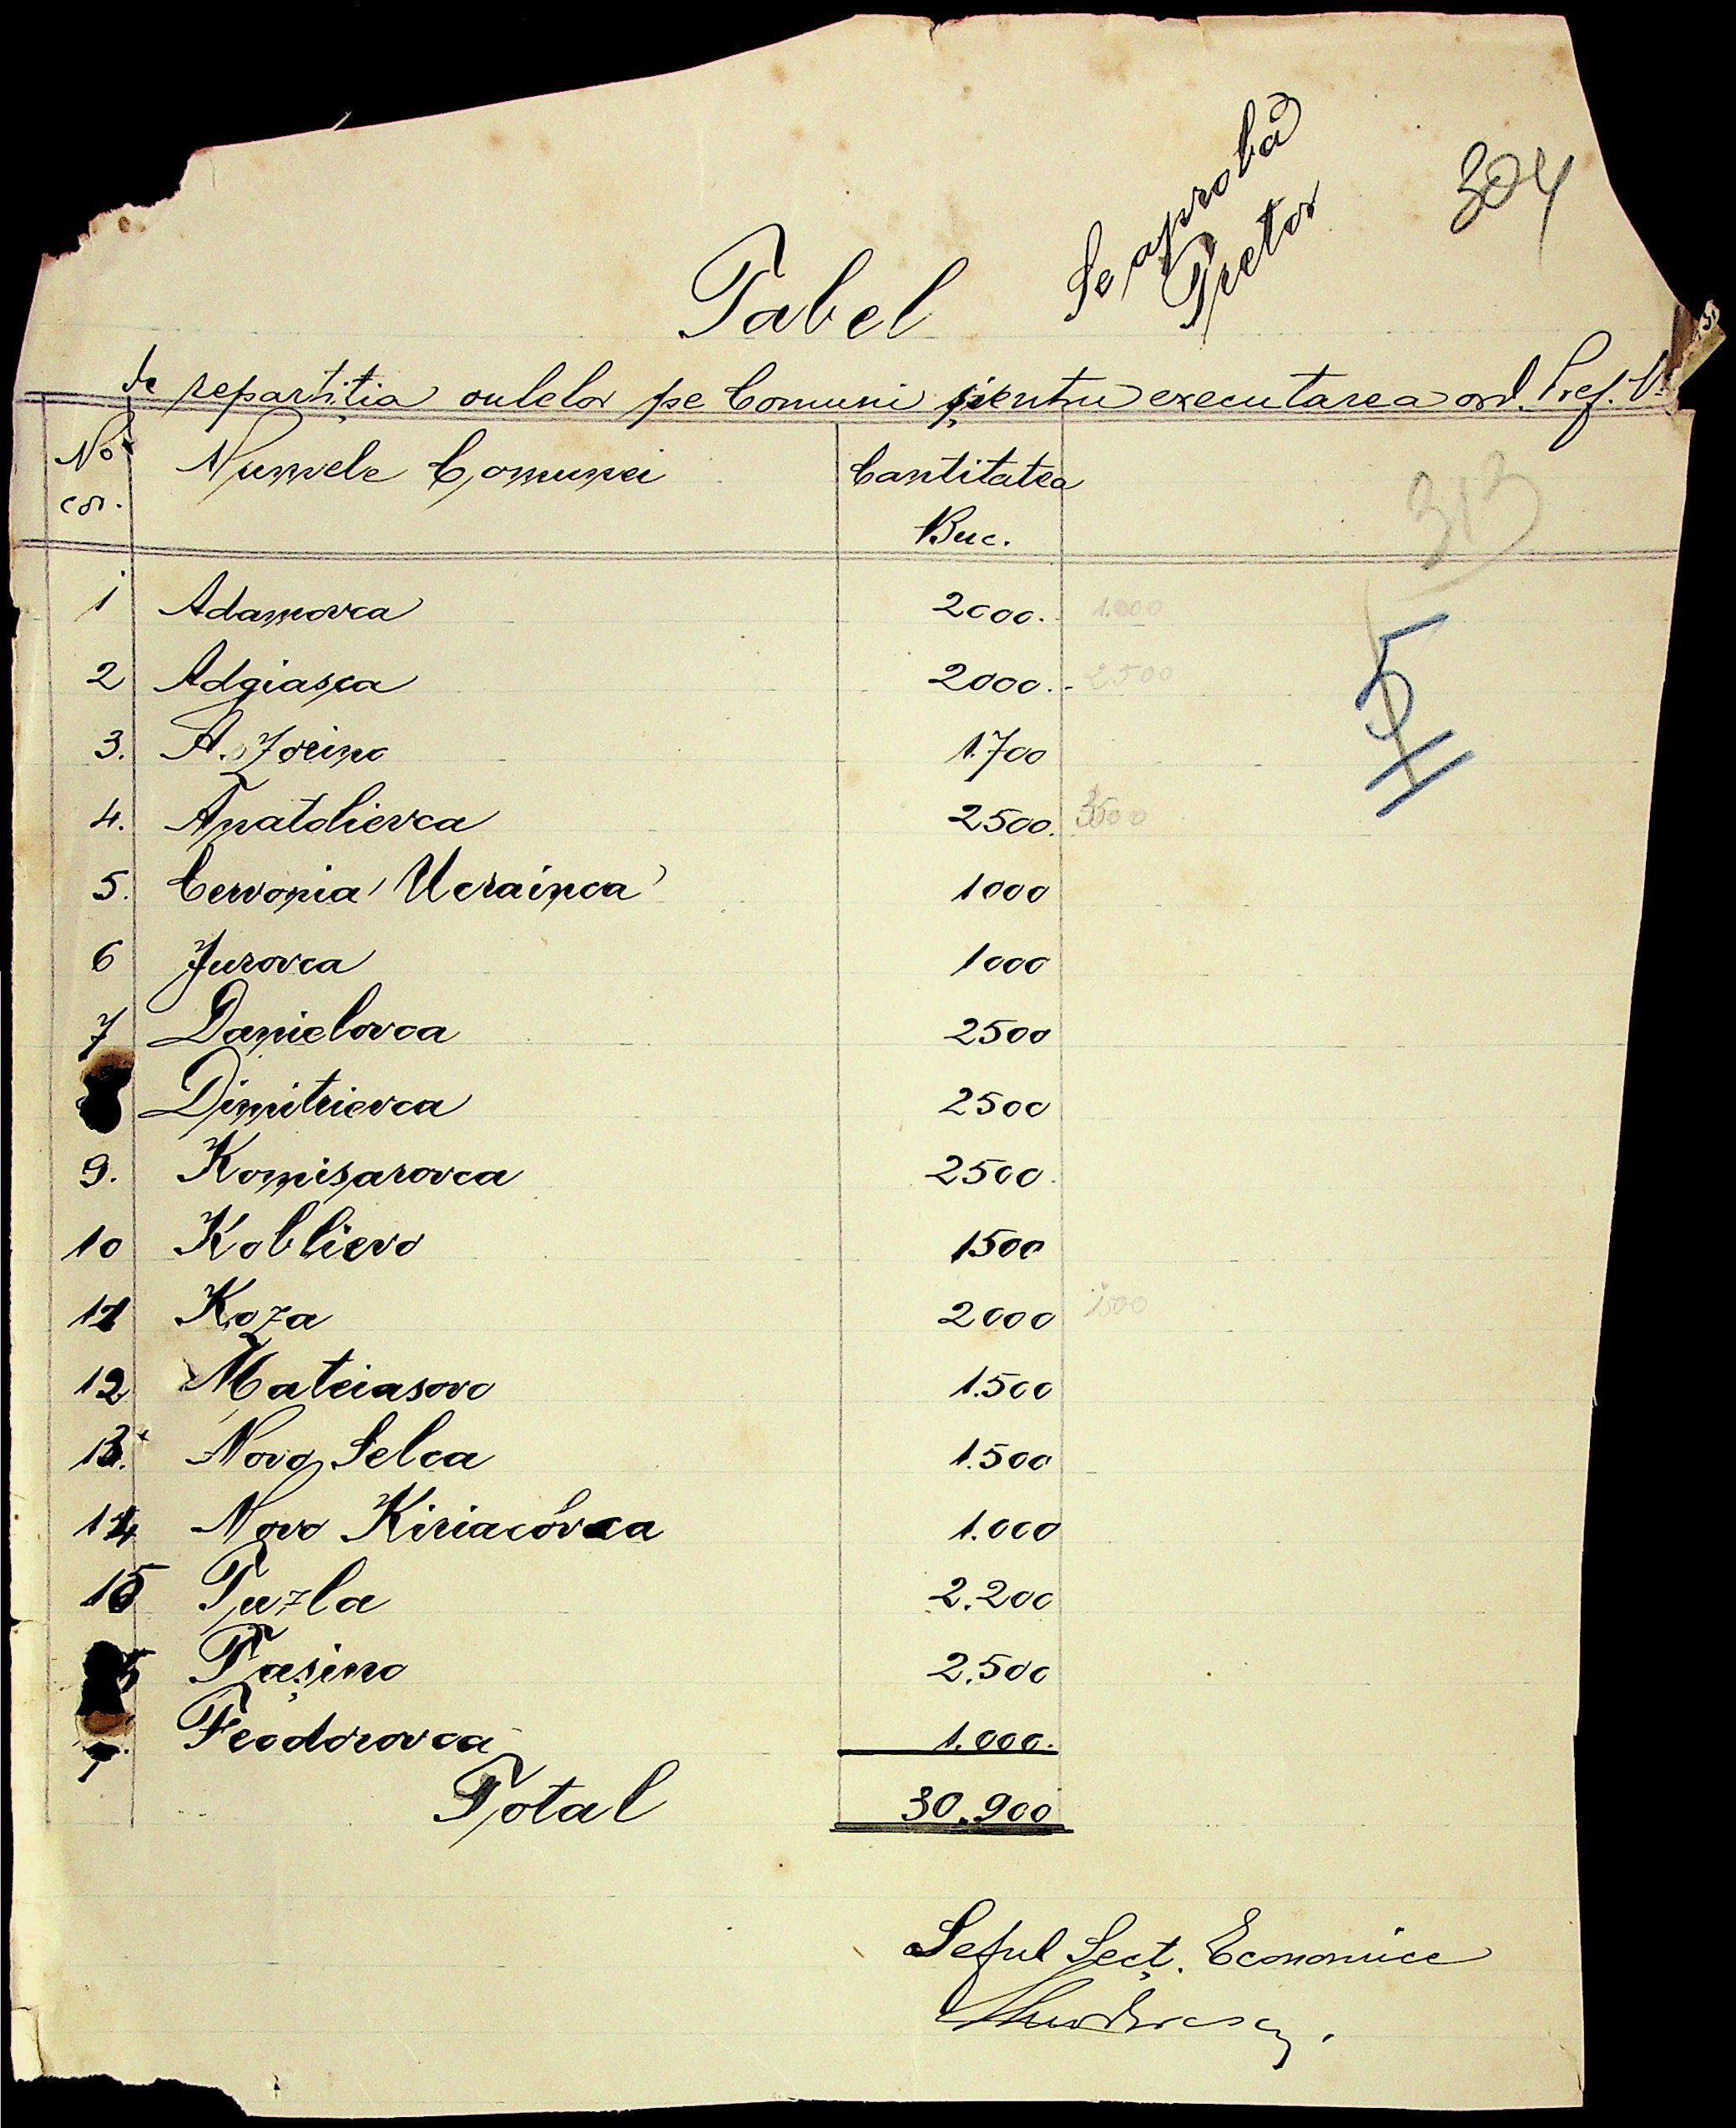 304
Se aprobă
Pretor
Tabel
de repartiția oulelor pe Comuni pentru executarea ord. Pref.
No
Numele Comunei
Cantitatea
crt.
Buc.
313
1 Adamovca 2000. 1.000
2 Adgiasca 2000. - 2500
5
II
3. A. Zorino 1.700
4. Anatolievca 2500. 3500
5. Cervonia Ucrainca 1000
6 Jurovca 1000
7 Danielovca 2500
Dimitrievca 2500
9. Komisarovca 2500.
10 Koblievo 1500
11 Koza 2000 1500
12 Mateiasovo 1.500
13. Novo Selca 1.500
14 Novo Kiriacovca 1.000
15 Tuzla 2.200
Tașino 2.500
Feodorovca 1.000.
Total 30.900
Seful Secț. Economice